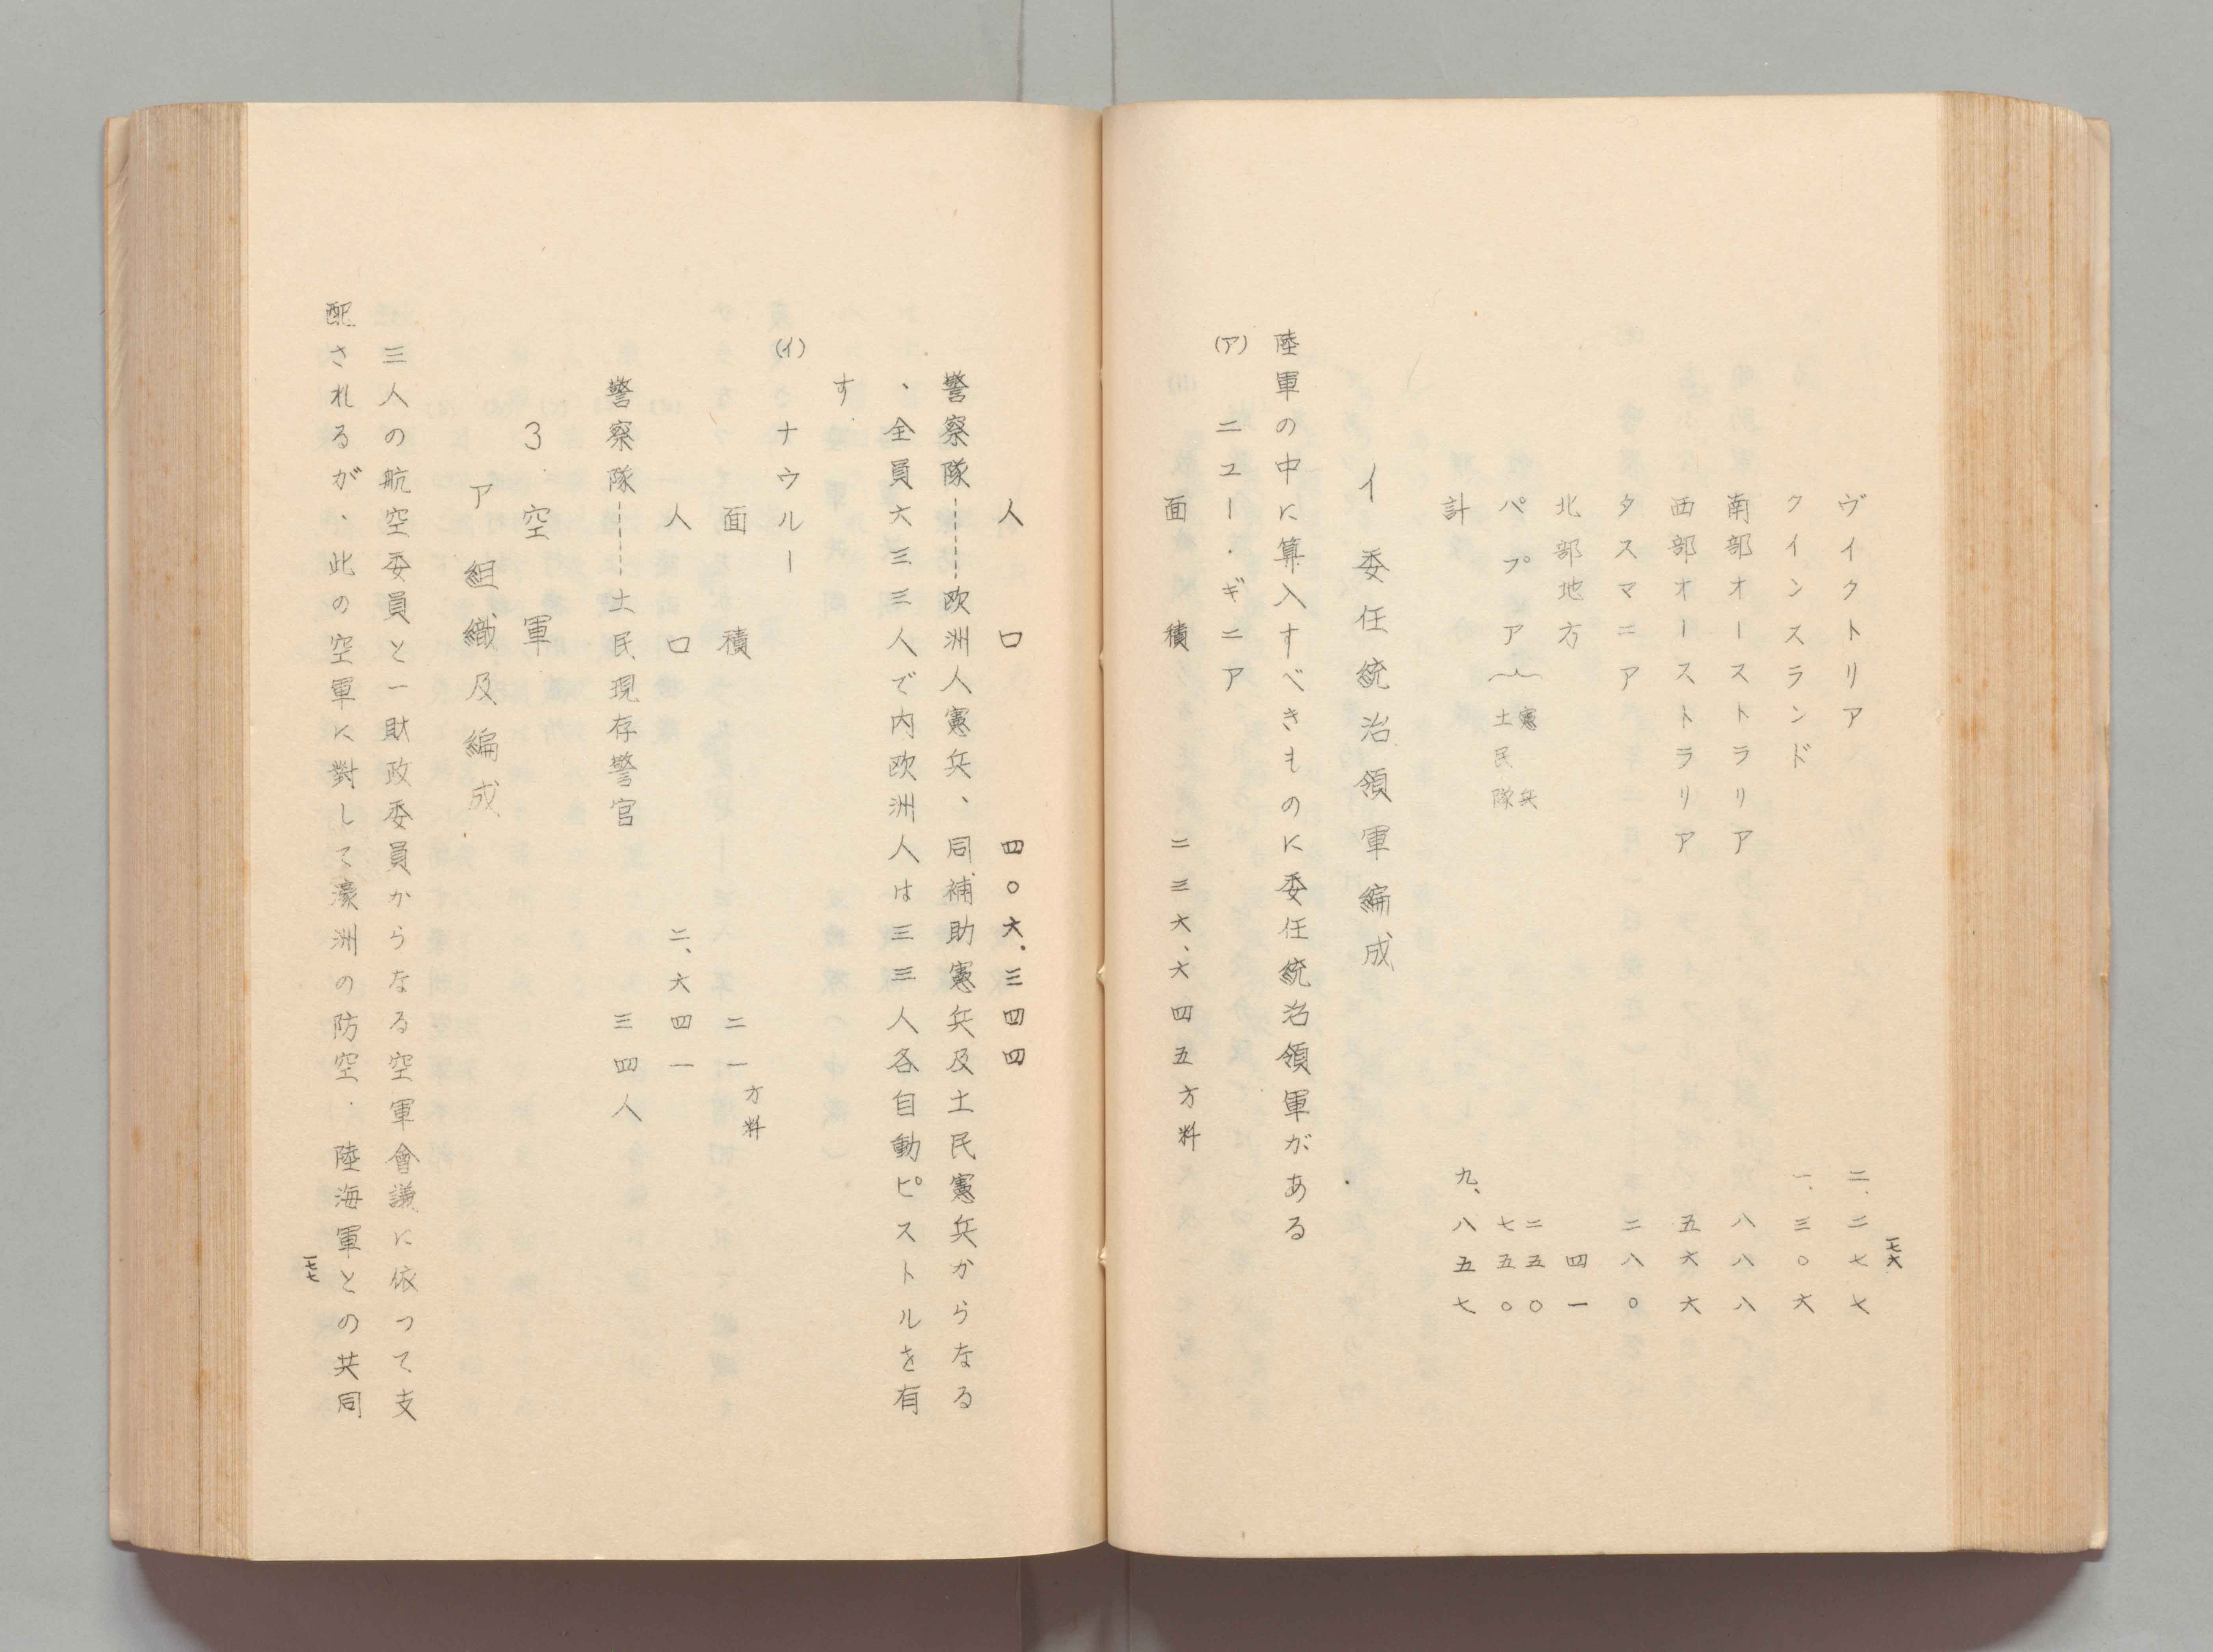 一七六
ヴイクトリア 二、二七七
クインスランド 一、三〇六
南部オーストラリア 八八八
西部オーストラリア 五六六
タスマニア 二八〇
北部地方 四一
パプア 憲兵 二五〇
土民隊 七五〇
計 九、八五七
イ 委任統治領軍編成
陸軍の中に算入すべきものに委任統治領軍がある
(ア) ニユー・ギニア
面積 二三六、六四五方粁
人口 四〇六、三四四
警察隊-----欧洲人憲兵、同補助憲兵及土民憲兵からなる
、全員六三三人で内欧洲人は三三人各自動ピストルを有
す.
(イ) ナウルー
面積 二一方粁
人口 二、六四一
警察隊-----土民現存警官 三四人
3. 空軍
ア 組織及編成
三人の航空委員と一財政委員からなる空軍會議に依つて支
配されるが、此の空軍に對して濠洲の防空．陸海軍との共同
一七七